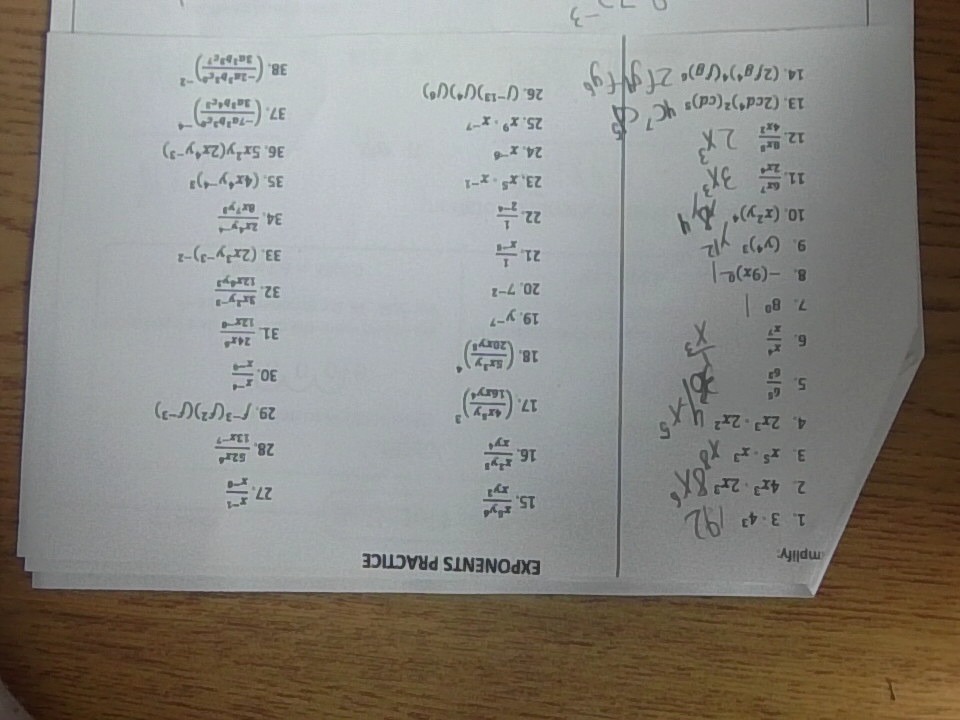 EXPONENTS PRACTICE
mplify:
1. 3 · 4³ 192
2. 4x³ · 2x³ 8x⁶
3. x⁵ · x³ x⁸
4. 2x³ · 2x² 4x⁵
5. 6⁵/6³
6. x⁴/x⁷ 1/x³
7. 8⁰ 1
8. −(9x)⁰ -1
9. (y⁴)³ y12
10. (x²y)⁴
11. 6x⁷/2x⁴ 3x³
12. 8x⁵/4x² 2x³
13. (2cd⁴)²(cd)⁵ 4c⁷
14. (2fg⁴)⁴(fg)⁶
15. x⁶y⁶/xy³
16. x²y⁵/xy⁴
17. (4x⁵y/16xy⁴)³
18. (5x³y/20xy⁵)⁴
19. y⁻⁷
20. 7⁻²
21. 1/x⁻⁵
22. 1/2⁻⁴
23. x⁵ · x⁻¹
24. x⁻⁶
25. x⁹ · x⁻⁷
26. (j⁻¹³)(j⁴)(j⁶)
27. x⁻¹/x⁻⁸
28. 52x⁶/13x⁻⁷
29. f⁻³(f²)(f⁻³)
30. x⁻⁴/x⁻⁹
31. 24x⁶/12x⁻⁸
32. 3x²y⁻³/12x⁶y³
33. (2x³y⁻³)⁻²
34. 2x⁴y⁻⁴/8x⁷y³
35. (4x⁴y⁻⁴)³
36. 5x²y(2x⁴y⁻³)
37. (−7a²b³c⁰/3a³b⁴c³)⁻⁴
38. (−2a³b²c⁰/3a²b³c⁷)⁻²